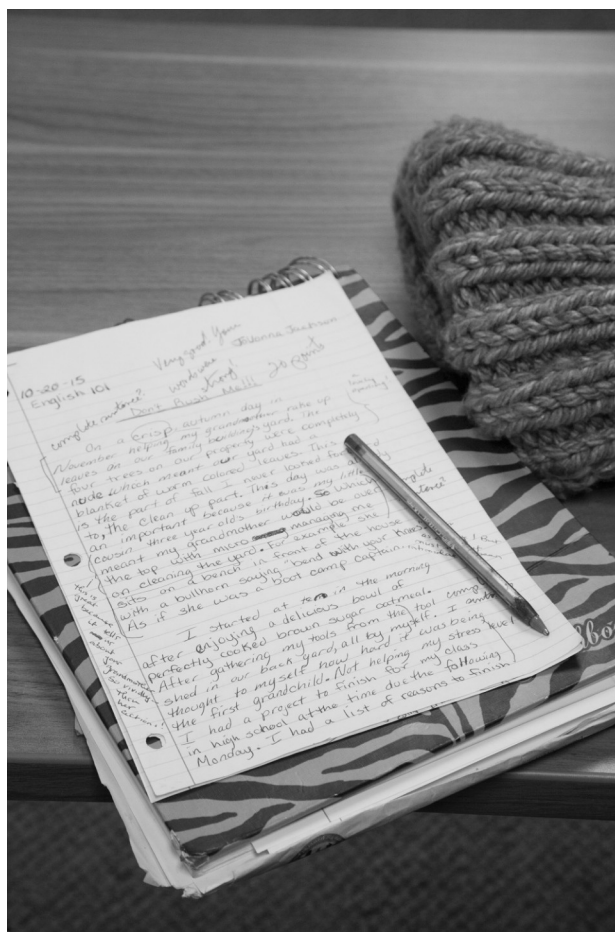 Very good! Your
word use
Jovanna Jackson
10-20-15
English 101
strong!
20 points
Don't Rush Me!!!
complete sentence?
On a crisp autumn day in
November helping my grandmother rake up
leaves on our family yard, the
four trees on our property were completely
nude which meant our yard had a
blanket of worm colored leaves. This
is the part of fall I never looked forward
to, the clean up part. This day was already
an important because it was my little
cousin three year olds birthday. So which
meant my grandmother would be over
the top with micro managing me
on cleaning the yard. For example she
sits on a bench in front of the house
with a bullhorn saying "bend with your knees"
As if she was a boot camp captain.
complete
sentence?
This is
great
because
it tells
about
your
grandmother
her
actions!!
I started at ten in the morning
after enjoying a delicious bowl of
perfectly cooked brown sugar oatmeal.
After gathering my tools from the tool
shed in our back yard, all by myself. I
thought to myself how hard it was being
the first grandchild. Not helping my stress level
I had a project to finish for my class
in high school at the time due the following
Monday. I had a list of reasons to finish